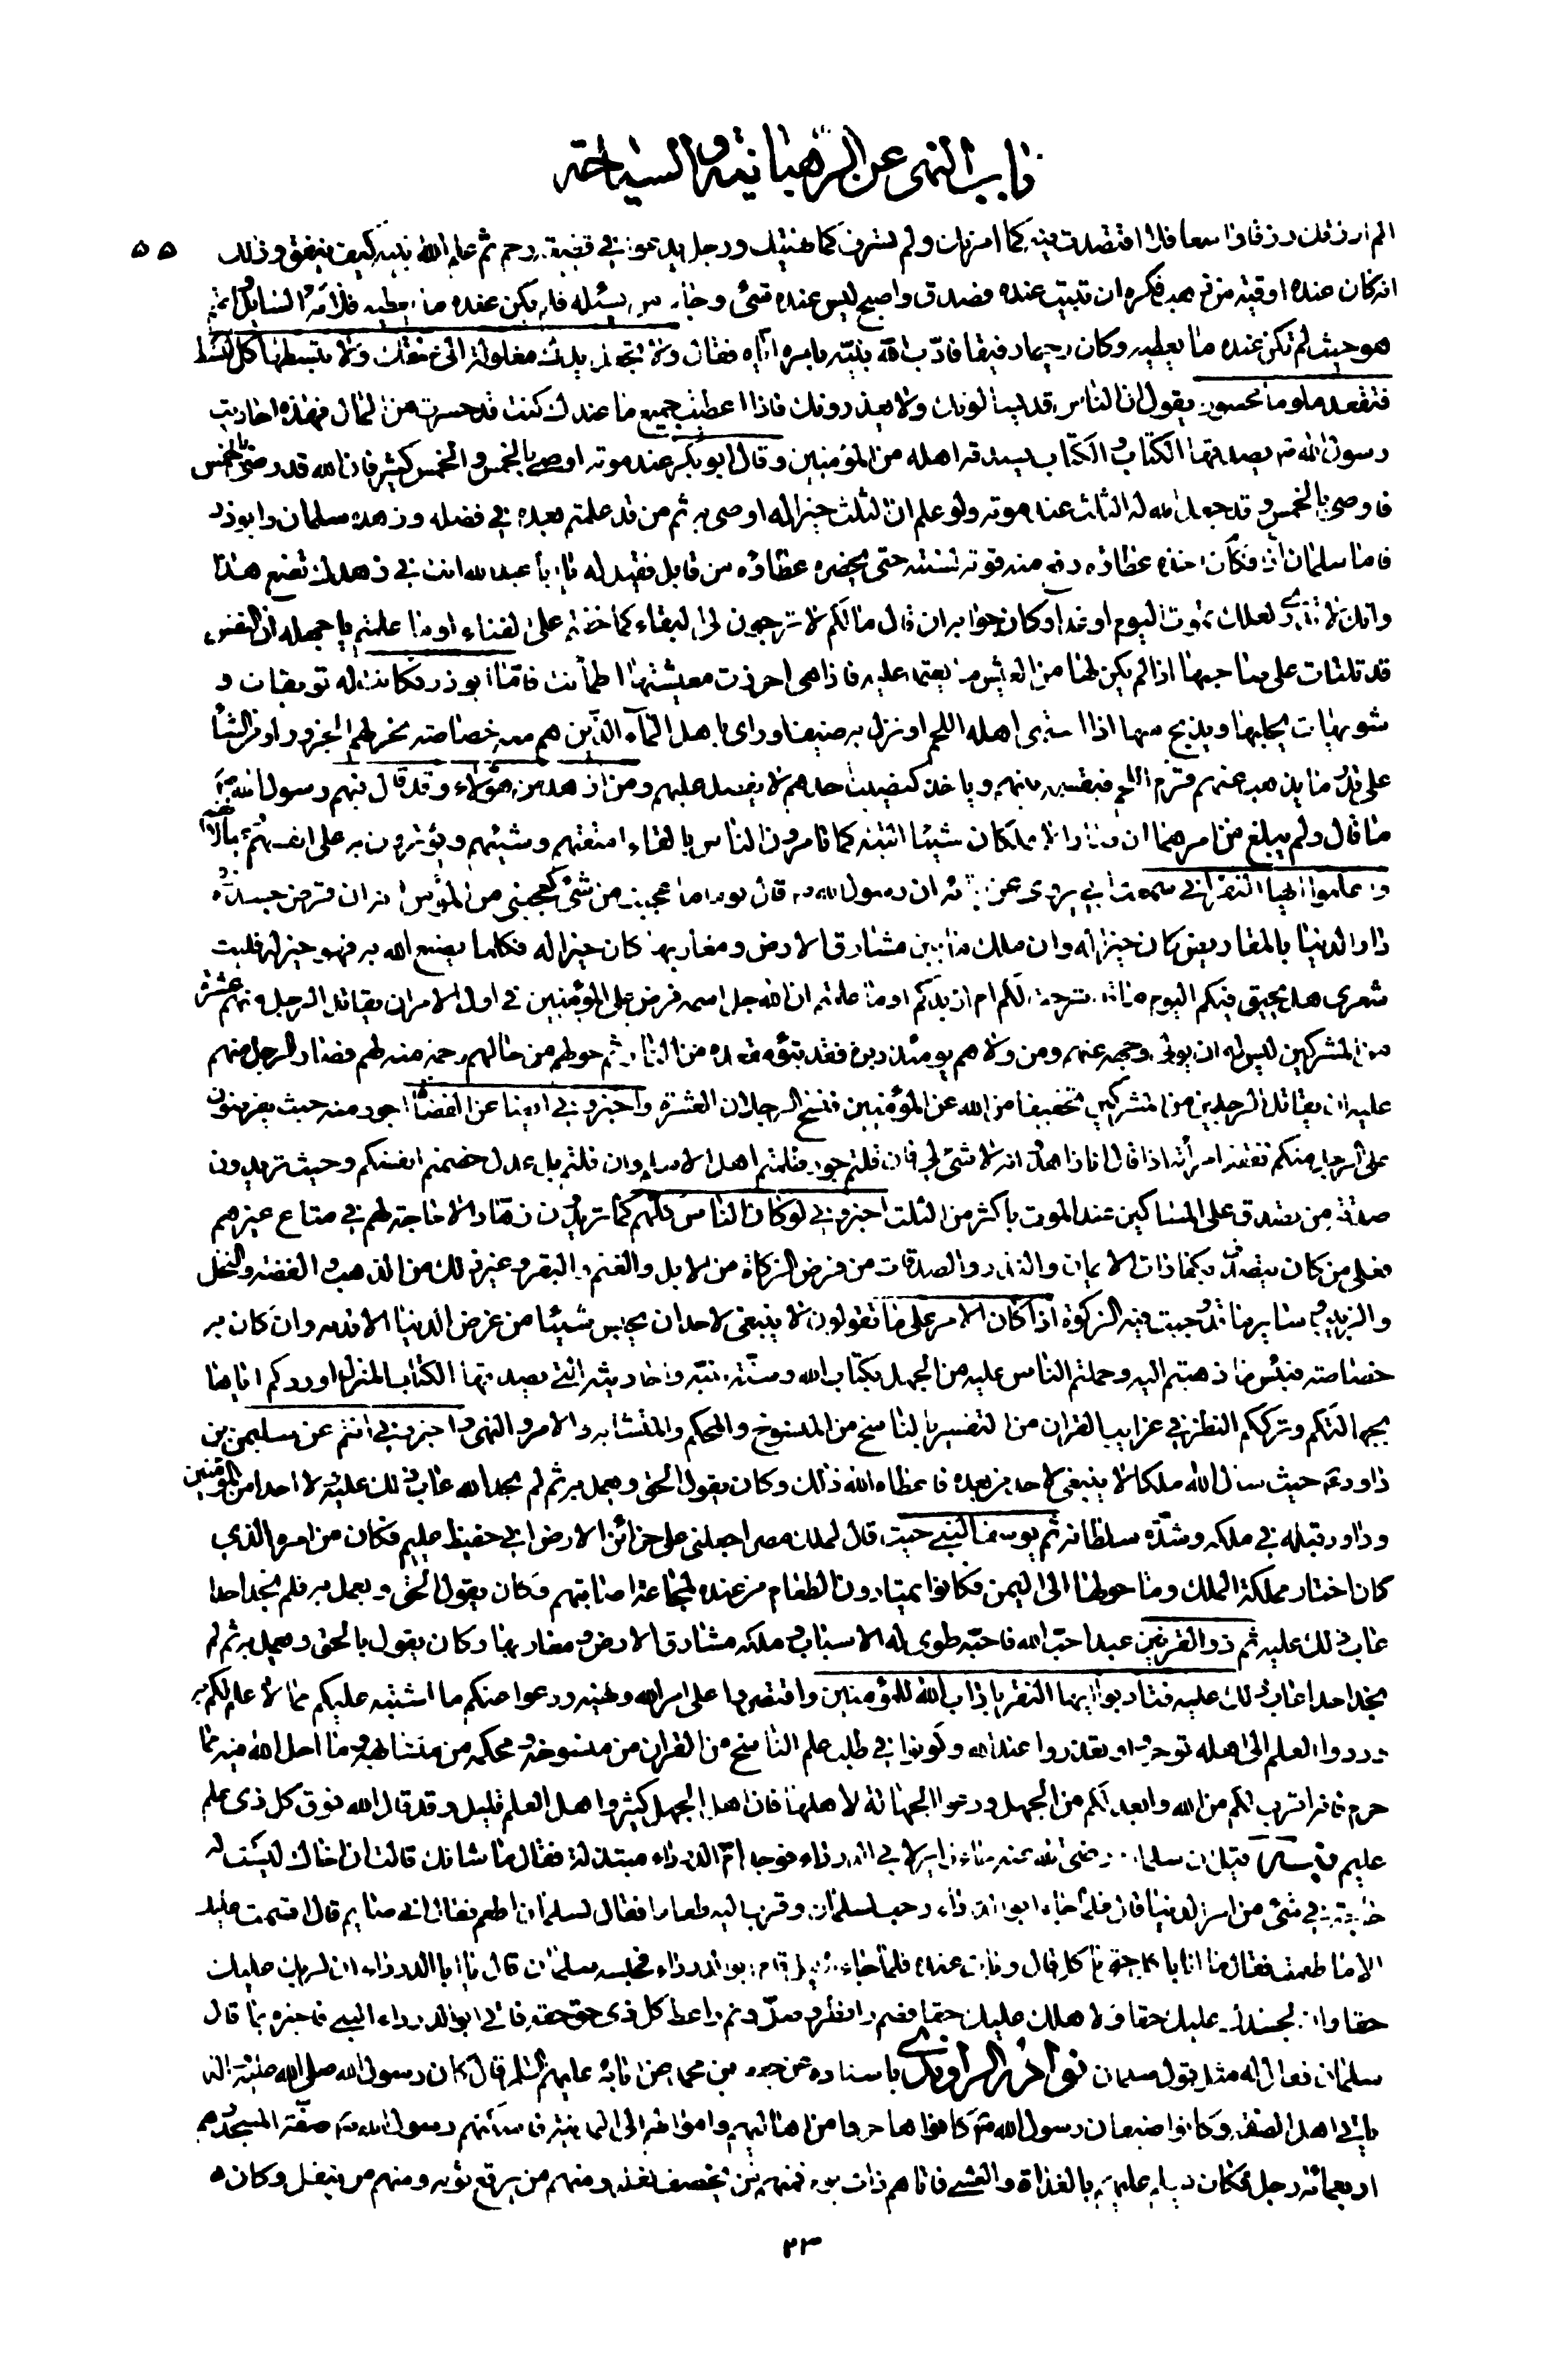 باب النهى عن الرهبانية والسياحة
٥٥
الم ارزقك رزقا واسعا فلا اقتصدت فيه كما امرتك ولم تسرف كما نهيتك ورجل يدعو فى قطيعة رحم ثم علم الله نبيه كيف ينفق وذلك
انه كان عنده اوقية من ذهب فكره ان تبيت عنده فصدق واصبح ليس عنده شئ وجاءه من يسئله فلم يكن عنده ما يعطيه فلامه السايل واغتم
هو حيث لم يكن عنده ما يعطيه وكان رحيما رفيقا فادب الله نبيه بامره اياه فقال ولا تجعل يدك مغلولة الى عنقك ولا تبسطها كل البسط
فتقعد ملوما محسورا يقول ان الناس قد يسالونك ولا يعذرونك فاذا اعطيت جميع ما عندك كنت قد حسرت من المال فهذه احاديث
رسول الله ص يصدقها الكتاب والكتاب يصدقه اهله من المؤمنين وقال ابو بكر عند موته اوصى بالخمس والخمس كثير فان الله قد رضى بالخمس
فاوصى بالخمس وقد جعل الله له الثلث عند موته ولو علم ان الثلث خير له اوصى به ثم من قد علمتم بعده فى فضله وزهده سلمان وابو ذر
فاما سلمان فكان اذا اخذ عطاؤه رفع منه قوته لسنته حتى يحضره عطاؤه من قابل فقيل له يا ابا عبد الله انت فى زهدك تصنع هذا
وانك لا تدرى لعلك تموت اليوم او غدا وكان جوابه ان قال مالكم لا ترجون لى البقاء كما خفتم على الفناء او ما علمتم يا جهلة ان النفس
قد تلتاث على صاحبها اذا لم يكن لها من العيش ما يعتمد عليه فاذا هى احرزت معيشتها اطمأنت فاما ابو ذر فكانت له نويقات و
شويهات يحلبها ويذبح منها اذا اشتهى اهله اللحم او نزل به ضيف او راى باهل الماء الذين هم معه خصاصة نحر لهم الجزور او من الشاء
على قدر ما يذهب عنهم قرم اللحم فيقسمه بينهم وياخذ كنصيب احدهم لا يفضل عليهم ومن ازهد من هؤلاء وقد قال فيهم رسول الله ص
ما قال ولم يبلغ من امرهما ان صارا لا يملكان شيئا البتة كما تامرون الناس بالقاء امتعتهم وشيئهم ويؤثرون به على انفسهم وعيالاتهم
واعلموا ايها النفر انى سمعت ابى يروى عن ابائه ان رسول الله ص قال يوما ما عجبت من شئ كعجبى من المؤمن انه ان قرض جسده فى
دار الدنيا بالمقاريض كان خيرا له وان ملك ما بين مشارق الارض ومغاربها كان خيرا له فكلما يصنع الله به فهو خير له فليت
شعرى هل يحيق فيكم اليوم ما قد شرحت لكم ام ازيدكم او ما علمتم ان الله جل اسمه فرض على المؤمنين فى اول الامر ان يقاتل الرجل منهم عشرة
من المشركين ليس له ان يولى وجهه عنهم ومن ولاهم يومئذ دبره فقد تبوء مقعده من النار ثم حولهم من حالهم رحمة منه لهم فصار الرجل منهم
عليه ان يقاتل الرجلين من المشركين تخفيفا من الله عن المؤمنين فنسخ الرجلان العشرة واخبرونى ايضا عن القضاة اجور منه حيث يفرضون
على الرجل منكم نفقة امرأته اذا قال انا زاهد وانه لا شئ لى فان قلتم جور ظلمتم اهل الاسلام وان قلتم بل عدل خصمتم انفسكم وحيث تريدون
صدقة من تصدق على المساكين عند الموت باكثر من الثلث اخبرونى لو كان الناس كلهم كما تريدون زهادا لا حاجة لهم فى متاع غيرهم
فعلى من كان يتصدق بكفارات الايمان والنذور والصدقات من فرض الزكاة من الابل والغنم والبقر وغير ذلك من الذهب والفضة والنخل
والزبيب وسائر ما قد وجبت فيه الزكوة اذا كان الامر على ما تقولون لا ينبغى لاحد ان يحبس شيئا من عرض الدنيا الا قدمه وان كان به
خصاصة فبئس ما ذهبتم اليه وحملتم الناس عليه من الجهل بكتاب الله وسنة نبيه واحاديثه التى يصدقها الكتاب المنزل او ردكم اياها
بجهالتكم وترككم النظر فى غرايب القران من التفسير بالناسخ من المنسوخ والمحكم والمتشابه والامر والنهى واخبرونى انتم عن سليمن بن
داود ع حيث سال الله ملكا لا ينبغى لاحد من بعده فاعطاه الله ذلك وكان يقول الحق ويعمل به ثم لم نجد الله عاب ذلك عليه ولا احدا من المؤمنين
وداود قبله فى ملكه وشدة سلطانه ثم يوسف النبى حيث قال لملك مصر اجعلنى على خزائن الارض انى حفيظ عليم فكان من امره الذى
كان اختار مملكة الملك وما حولها الى اليمن فكانوا يمتارون الطعام من عنده لمجاعة اصابتهم وكان يقول الحق ويعمل به فلم نجد احدا
عاب ذلك عليه ثم ذو القرنين عبد احب الله فاحبه طوى له الاسباب وملكه مشارق الارض ومغاربها وكان يقول بالحق ويعمل به ثم لم
نجد احدا عاب ذلك عليه فتادبوا ايها النفر باداب الله للمؤمنين واقتصروا على امر الله ونهيه ودعوا عنكم ما اشتبه عليكم مما لا علم لكم به
وردوا العلم الى اهله توجروا وتعذروا عند الله وكونوا فى طلب علم الناسخ من القران من منسوخه ومحكمه من متشابهه وما احل الله فيه مما
حرم فانه اقرب لكم من الله وابعد لكم من الجهل ودعوا الجهالة لاهلها فان اهل الجهل كثير واهل العلم قليل وقد قال الله فوق كل ذى علم
عليم قيل ان سلمان رضى الله عنه جاء زايرا لابى الدرداء فوجد ام الدرداء مبتذلة فقال ما شانك قالت ان اخاك ليست له
حاجة فى شئ من امر الدنيا قال فلما جاء ابو الدرداء رحب لسلمان وقرب اليه طعاما فقال لسلمان اطعم فقال انى صايم قال اقسمت عليك
الا ما طعمت فقال ما انا باكل حتى تاكل قال وبات عنده فلما جاء الليل قام ابو الدرداء فحبسه سلمان قال يا ابا الدرداء ان لربك عليك
حقا وان لجسدك عليك حقا ولاهلك عليك حقا فصم وافطر وصل ونم واعط كل ذى حق حقه فاتى ابو الدرداء النبى فاخبره بما قال
سلمان فقال له مثل قول سلمان نوادر الراوندى باسناده عن جعفر بن محمد عن ابائه عليهم السلم قال كان رسول الله صلى الله عليه واله
ياتى اهل الصفة وكانوا ضيفان رسول الله ص كانوا هاجروا من اهاليهم واموالهم الى المدينة فاسكنهم رسول الله ص صفة المسجد وهم
اربعمائة رجل فكان يسلم عليهم بالغداة والعشى فاتاهم ذات يوم فمنهم من يخصف نعله ومنهم من يرقع ثوبه ومنهم من يتفلى وكان
٢٣